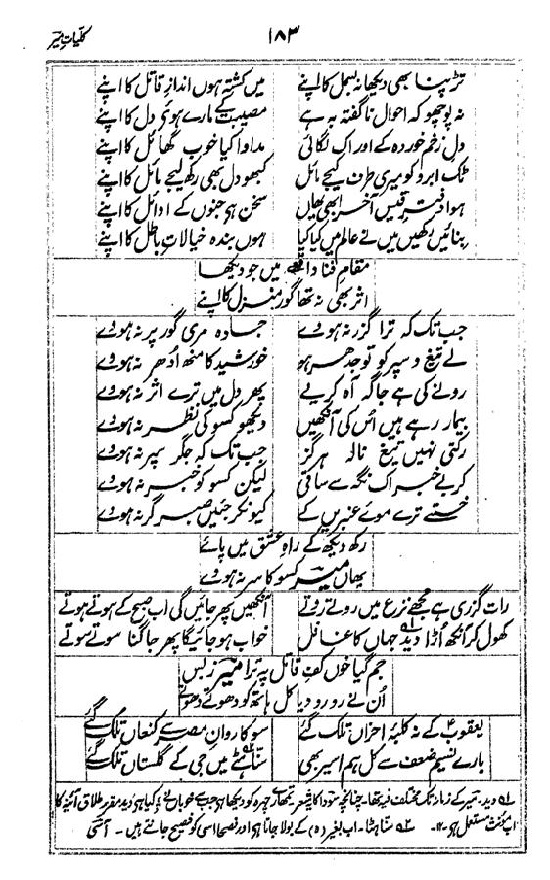 کلیاتِ میر
۱۸۳
تڑپنا بھی دیکھا نہ بسمل کا اپنے میں کشتہ ہوں اندازِ قاتل کا اپنے
نہ پوچھو کہ احوال ناگفتہ بہ ہے مصیبت کے مارے ہوئے دل کا اپنے
دلِ زخم خوردہ کے اور اک لگائی مداوا کیا خوب گھائل کا اپنے
ٹک ابرو کو میری طرف کیجے مائل کبھو دل بھی رکھ لیجے مائل کا اپنے
ہوا دفترِ قیس آخر ابھی یھاں سخن ہے جنوں کے اوائل کا اپنے
بنائیں رکھیں میں نے عالم میں کیا کیا ہوں بندہ خیالاتِ باطل کا اپنے
مقامِ فنا واقعے میں جو دیکھا
اثر بھی نہ تھا گور منزل کا اپنے
جب تک کہ ترا گزر نہ ہووے جلوہ مری گور پر نہ ہووے
لے تیغ و سپر کو تو جدھر ہو خورشید کا منھ اُدھر نہ ہووے
رونے کی ہے جاگہ آہ کریے پھر دل میں ترے اثر نہ ہووے
بیمار رہے ہیں اُس کی آنکھیں دیکھو کسو کی نظر نہ ہووے
رکتی نہیں تیغِ نالہ ہرگز جب تک کہ جگر سپر نہ ہووے
کر بے خبر اک نگہ سے ساقی لیکن کسو کو خبر نہ ہووے
خستے ترے موئے عنبریں کے کیونکر جئیں صبر گر نہ ہووے
رکھ دیکھ کے راہِ عشق میں پائے
یھاں میر کسو کا سر نہ ہووے
رات گزری ہے مجھے نزع میں روتے روتے آنکھیں پھر جائیں گی اب صبح کے ہوتے ہوتے
کھول کر آنکھ اُڑا دید جہاں کا غافل خواب ہو جائیگا پھر جاگنا سوتے سوتے
جم گیا خوں کفِ قاتل پہ ترا میر زبس
اُن نے رو رو دیا کل ہاتھ کو دھوتے دھوتے
یعقوبؑ کے نہ کلبۂ احزاں تلک گئے سو کاروانِ مصر سے کنعاں تلک گئے
بارے نسیم ضعف سے کل ہم اسیر بھی سنّاہٹے میں جی کے گلستاں تلک گئے
دید۔ میر کے زمانہ تک مختلف فیہ تھا۔ چنانچہ سودا کا شعر تمھارے چہرہ کو دیکھا ہو جب سے خوباں نے کیا ہو دید مقرر طلاق آئینہ کا
اب مؤنث مستعمل ہے۔ ۱۲ سنّاہٹا۔ اب بغیر (ہ) کے بولا جاتا ہو اور فصحا اسی کو فصیح جانتے ہیں۔ آسی